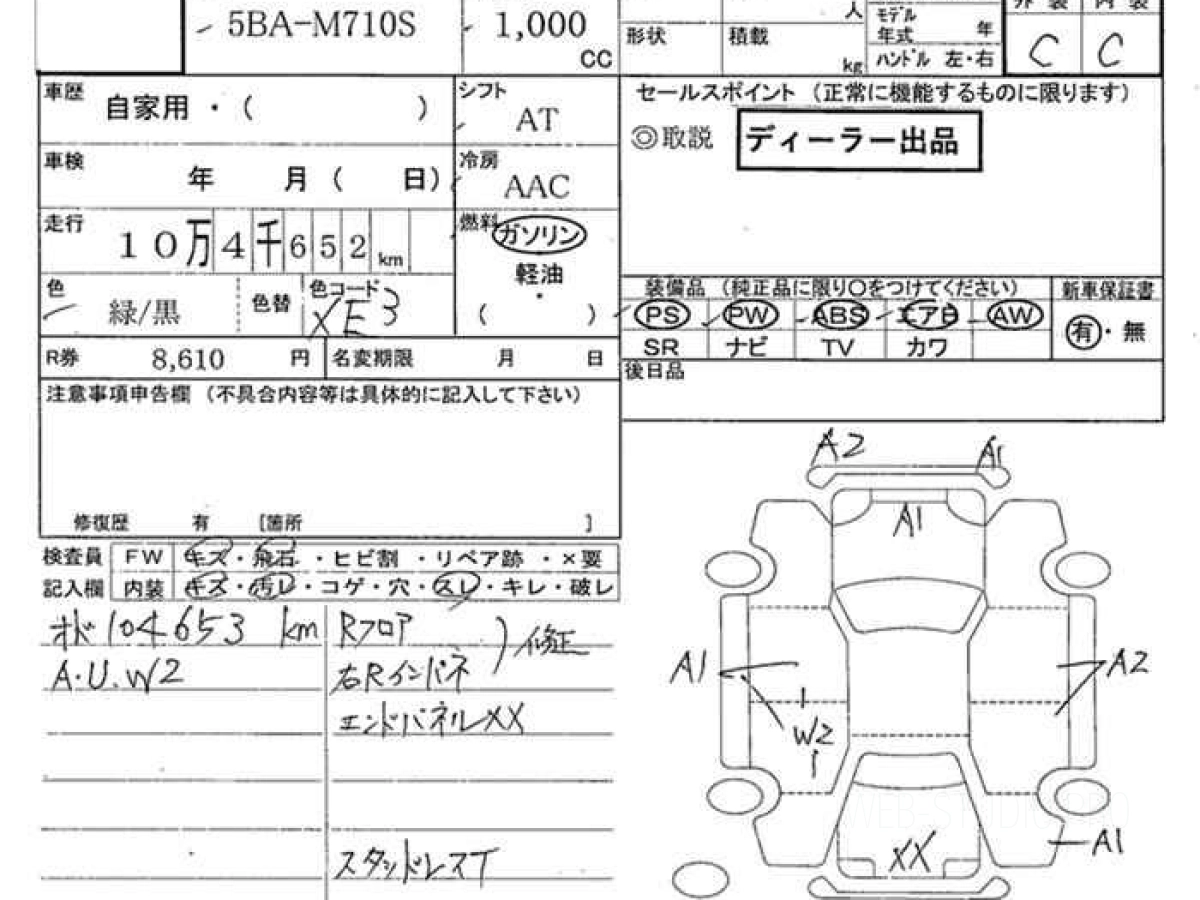 5BA-M710S 1,000 CC
人 モデル年式 年 外装 内装
形状 積載 kg ハンドル 左・右 C C
車歴 自家用・( ) シフト AT
車検 年 月( 日) 冷房 AAC
走行 10万4千652km 燃料 ガソリン
軽油
・
( )
色 緑/黒 色替 色コード XE3
R券 8,610 円 名変期限 月 日
注意事項申告欄 (不具合内容等は具体的に記入して下さい)
修復歴 有 [箇所 ]
セールスポイント (正常に機能するものに限ります)
◎取説 ディーラー出品
装備品 (純正品に限り○をつけてください) 新車保証書
PS PW ABS エアB AW 有・無
SR ナビ TV カワ
後日品
検査員 FW キズ・飛石・ヒビ割・リペア跡・×要
記入欄 内装 キズ・汚レ・コゲ・穴・スレ・キレ・破レ
オド 104653 km Rフロア
A.U.W2 右Rインパネ )修正
エンドパネルXX
スタッドレスT
A2 A1
A1
A1 A2
W2
XX A1